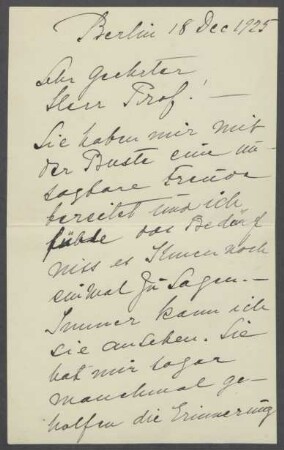 Berlin 18 Dec 1925
Sehr geehrter
Herr Prof! —
Sie haben mir mit
der Buste eine un
sagbare Freude
bereitet und ich
fühle das Bedürf
niss es Ihnen noch
einmal zu sagen. —
Immer kann ich
sie ansehen. Sie
hat mir sogar
manchmal ge-
holfen die Erinnerung